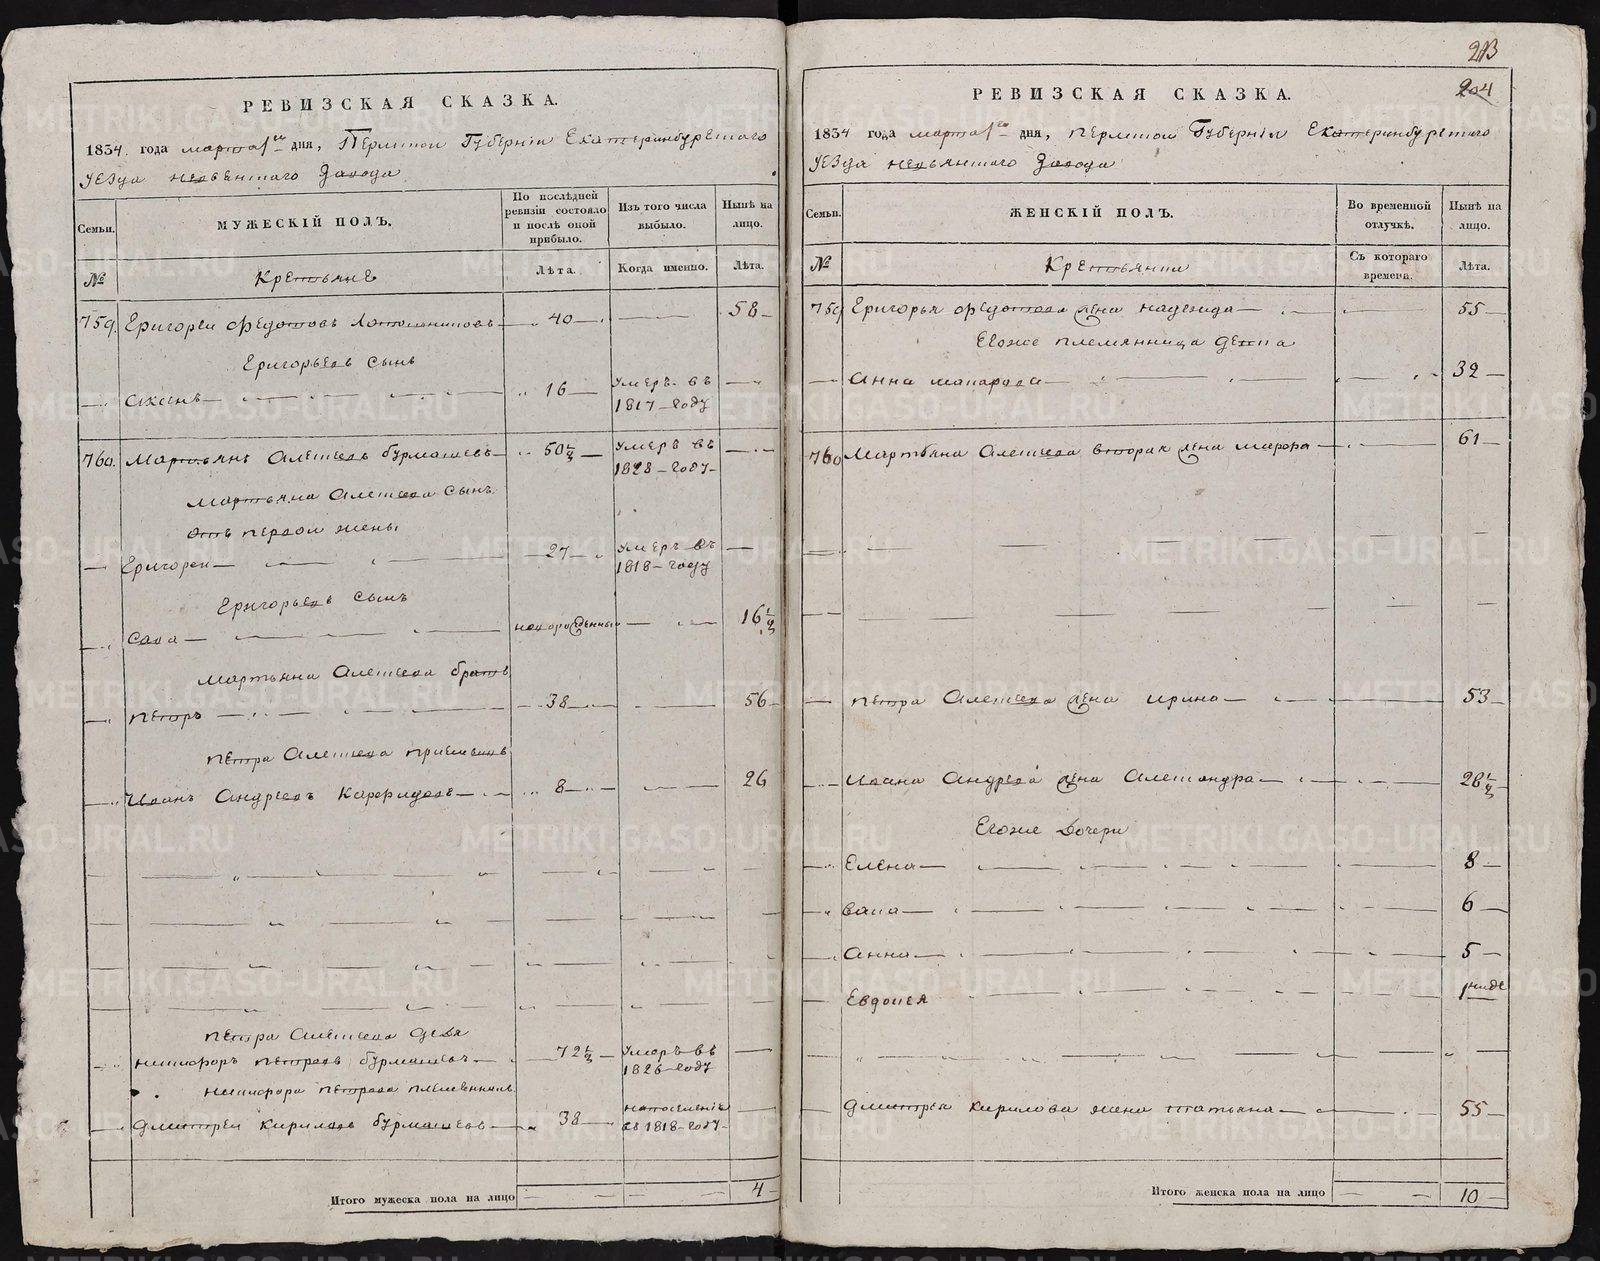 РЕВИЗСКАЯ СКАЗКА.
1834. года марта 1го дня, Пермской Губернiи Екатеринбургскаго
уезда невьянскаго Завода
Семьи.
МУЖЕСКIЙ ПОЛЪ.
По послѣдней ревизiи состояло и послѣ оной прибыло.
Изъ того числа выбыло.
Нынѣ на лицо.
№
Крестьяне
Лѣта.
Когда именно.
Лѣта.
759. Григореи Федотовъ 40 58
Григорьевъ сынъ
16 умеръ въ 1817 году
760. Мартьянъ Алексеевъ бурмашевъ 50½ умеръ въ 1828 году
Мартьяна Алексеева сынъ
отъ первои жены
Григореи 27 умеръ въ 1818 году
Григорьевъ сынъ
Сава новорожденныи 16½
мартьяна Алексеева братъ
петръ 38 56
петра Алексеева приемышъ
Иванъ Андреевъ 8 26
петра Алексеева дядя
никифоръ петровъ бурмашевъ 72½ умеръ въ 1826 году
никифора петрова племянникъ
дмитреи кириловъ бурмашевъ 38 въ 1818 году
Итого мужеска пола на лицо 4
213
204
РЕВИЗСКАЯ СКАЗКА.
1834 года марта 1го дня, пермской Губернiи Екатеринбургскаго
уезда невьянскаго Завода
Семьи.
ЖЕНСКIЙ ПОЛЪ.
Во временной отлучкѣ.
Нынѣ на лицо.
№
Крестьянки
Съ котораго времена.
Лѣта.
759 Григорья федотова жена надежда 55
Егоже племянница девка
Анна макарова 32
760 Мартьяна Алексеева вторая жена 61
петра Алексеева жена ирина 53
Ивана Андреева жена Александра 28½
Егоже дочери
Елена 8
6
Анна 5
Евдокея
дмитрея кирилова жена татьяна 55
Итого женска пола на лицо 10
METRIKI.GASO-URAL.RU